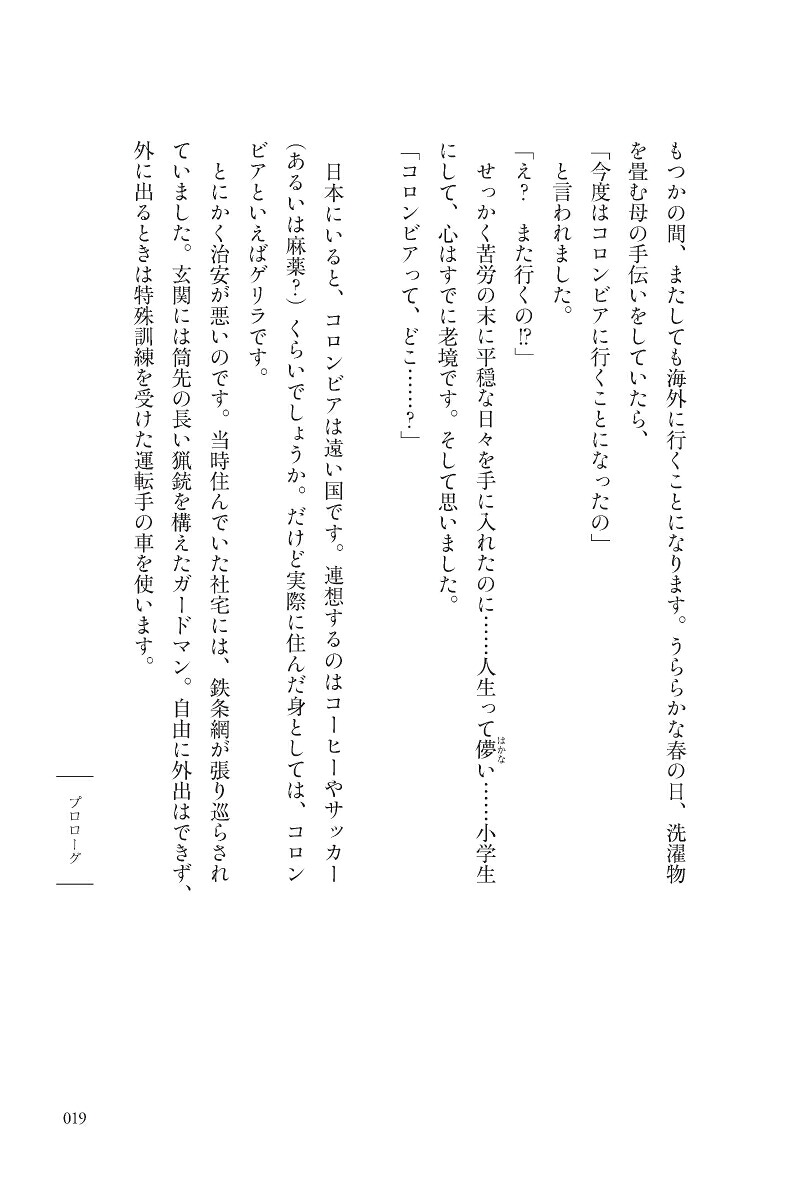 もつかの間、またしても海外に行くことになります。うららかな春の日、洗濯物
を畳む母の手伝いをしていたら、
「今度はコロンビアに行くことになったの」
と言われました。
「え？　また行くの!?」
せっかく苦労の末に平穏な日々を手に入れたのに……人生って儚い……小学生
はかな
にして、心はすでに老境です。そして思いました。
「コロンビアって、どこ……？」
日本にいると、コロンビアは遠い国です。連想するのはコーヒーやサッカー
（あるいは麻薬？）くらいでしょうか。だけど実際に住んだ身としては、コロン
ビアといえばゲリラです。
とにかく治安が悪いのです。当時住んでいた社宅には、鉄条網が張り巡らされ
ていました。玄関には筒先の長い猟銃を構えたガードマン。自由に外出はできず、
外に出るときは特殊訓練を受けた運転手の車を使います。
プロローグ
019